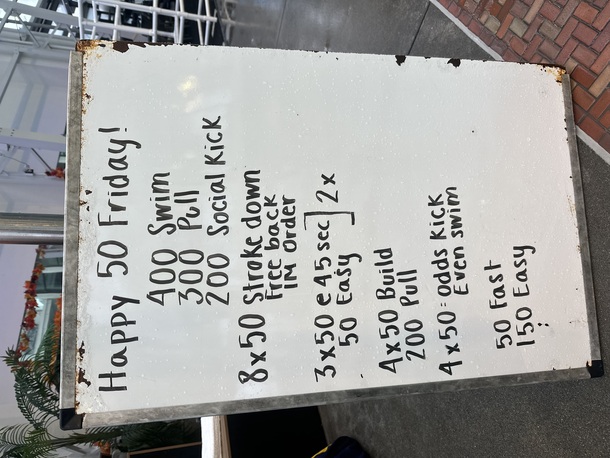 Happy 50 Friday!
400 Swim
300 Pull
200 Social Kick
8x50 Stroke down
Free back
IM order
3x50 @ 45sec] 2x
50 Easy
4x50 Build
200 Pull
4x50 = odds Kick
Even swim
50 Fast
150 Easy
: